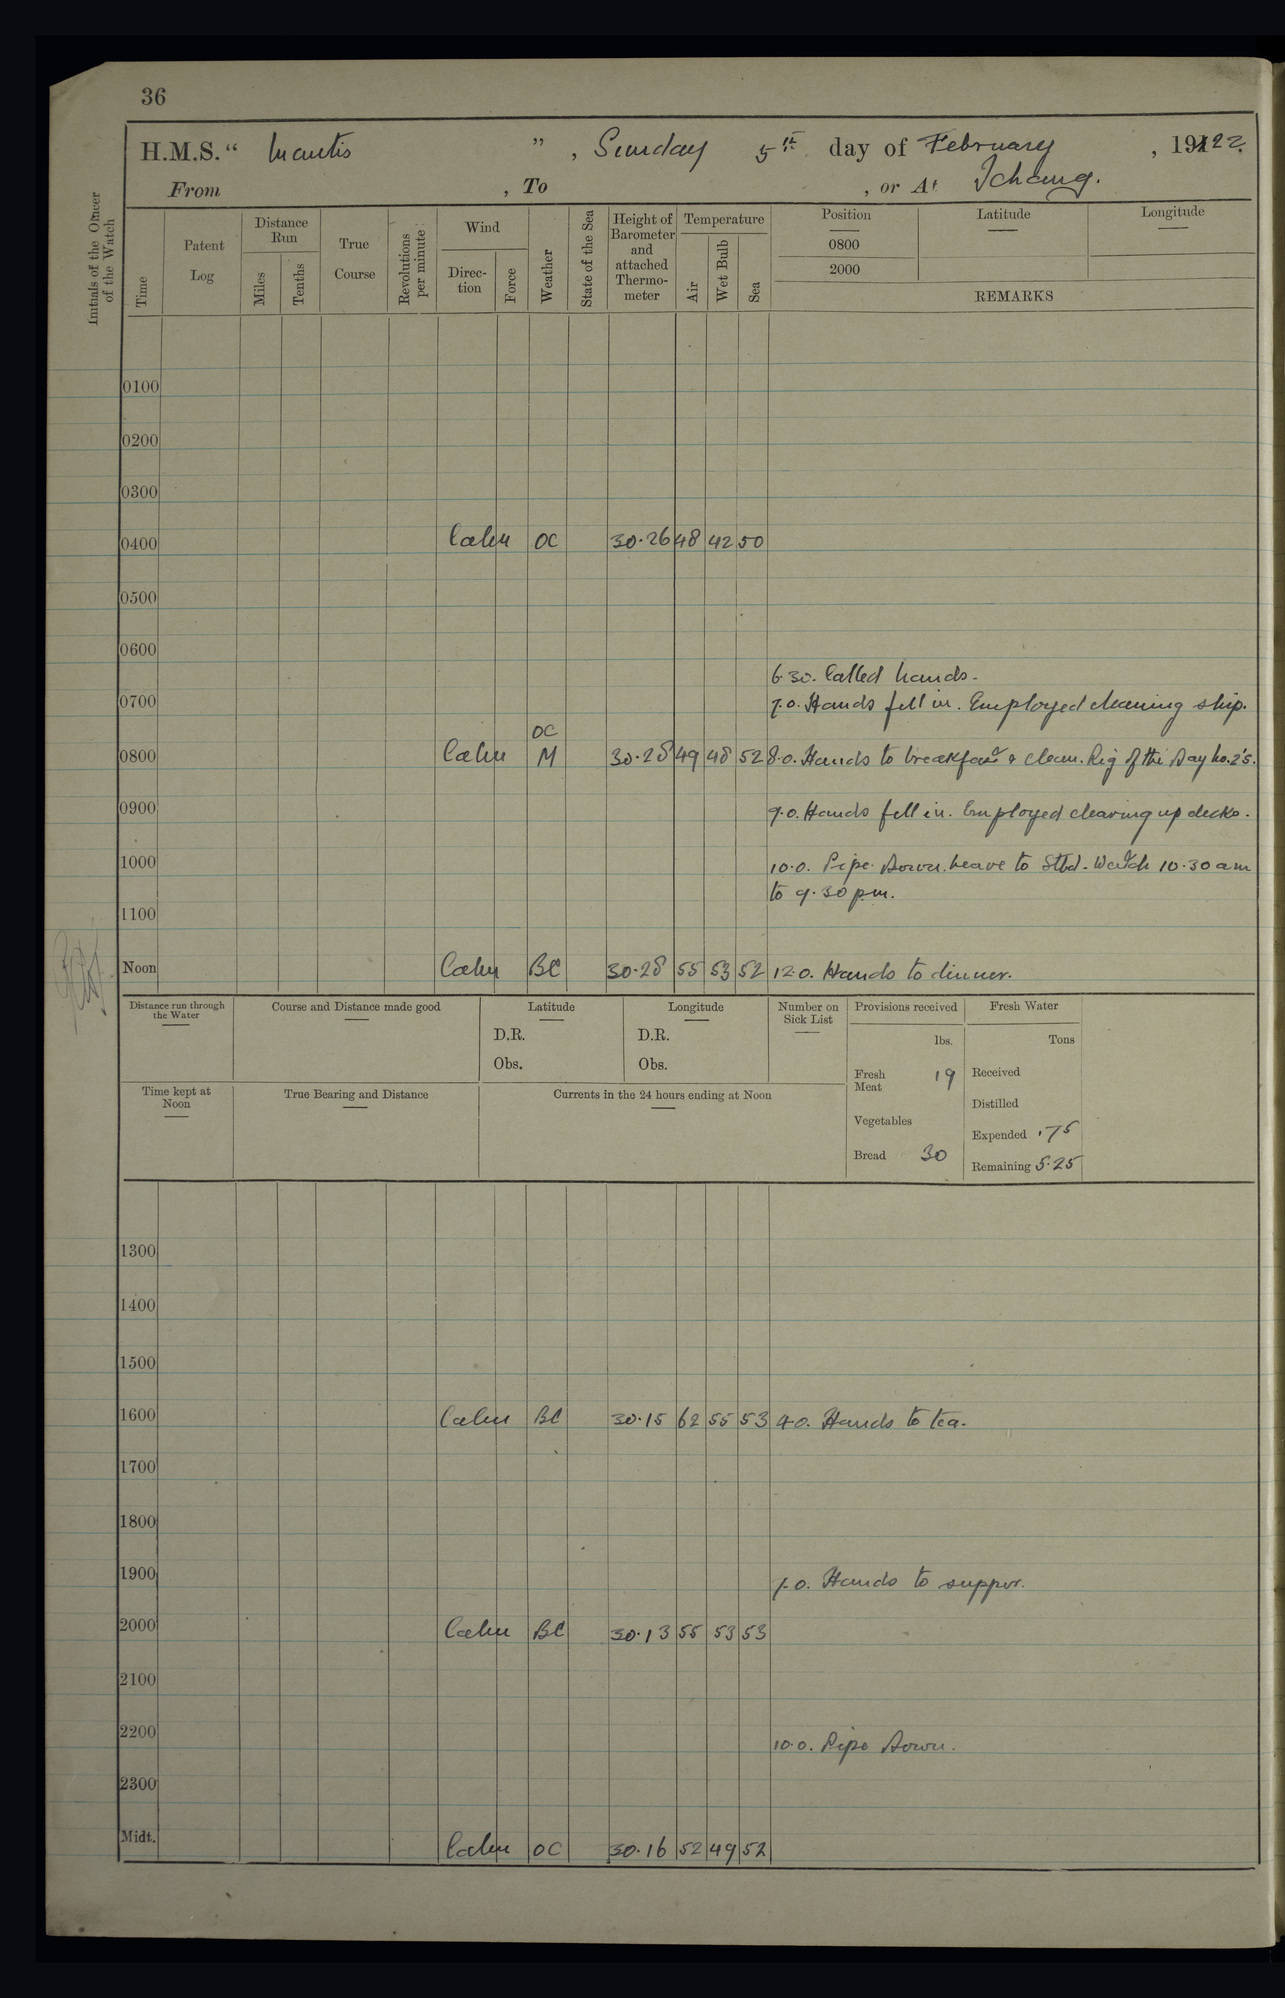 36
H.M.S. "Mantis", Sunday 5th day of February, 1922.
From , To , or At Ichang.
Initials of the Officer of the Watch
Time
Patent Log
Distance Run
Miles
Tenths
True Course
Revolutions per minute
Wind
Direction
Force
Weather
State of the Sea
Height of Barometer and attached Thermometer
Temperature
Air
Wet Bulb
Sea
Position
0800
2000
Latitude
Longitude
REMARKS
0100
0200
0300
0400 Calm OC 30.26 48 42 50
0500
0600
6.30. Called hands.
0700 7.0. Hands fell in. Employed cleaning ship.
OC
0800 Calm M 30.28 49 48 52 8.0. Hands to breakfast & clean. Rig of the Day No.2's.
0900 9.0. Hands fell in. Employed clearing up decks.
1000 10.0. Pipe Down. Leave to Stbd. Watch 10.30 am
to 9.30 pm.
1100
Noon Calm BC 30.28 55 53 52 12.0. Hands to dinner.
Distance run through the Water
Course and Distance made good
Latitude
D.R.
Obs.
Longitude
D.R.
Obs.
Number on Sick List
Provisions received
lbs.
Fresh Meat 19
Vegetables
Bread 30
Fresh Water
Tons
Received
Distilled
Expended .75
Remaining 5.25
Time kept at Noon
True Bearing and Distance
Currents in the 24 hours ending at Noon
1300
1400
1500
1600 Calm BC 30.15 62 55 53 4.0. Hands to tea.
1700
1800
1900 7.0. Hands to supper.
2000 Calm BC 30.13 55 53 53
2100
2200 10.0. Pipe Down.
2300
Midt. Calm OC 30.16 52 49 52